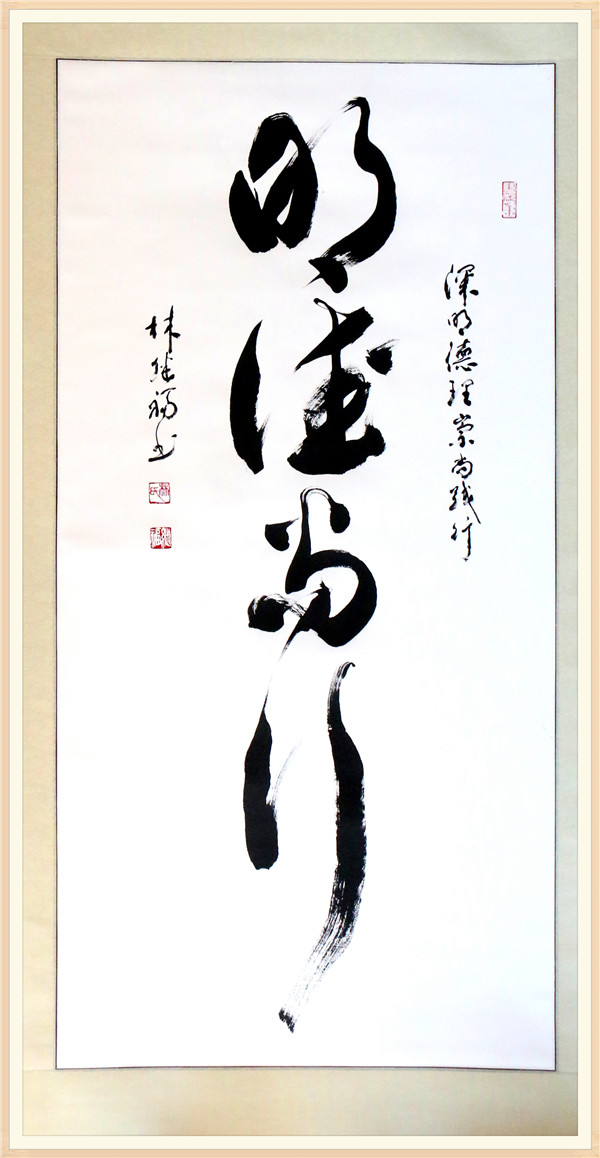 深明德理崇尚践行
明德尚行
林继福书